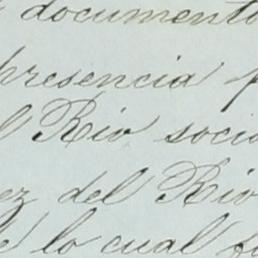 documento
presencia p
l Rio socia
ez del Rio
lo cual